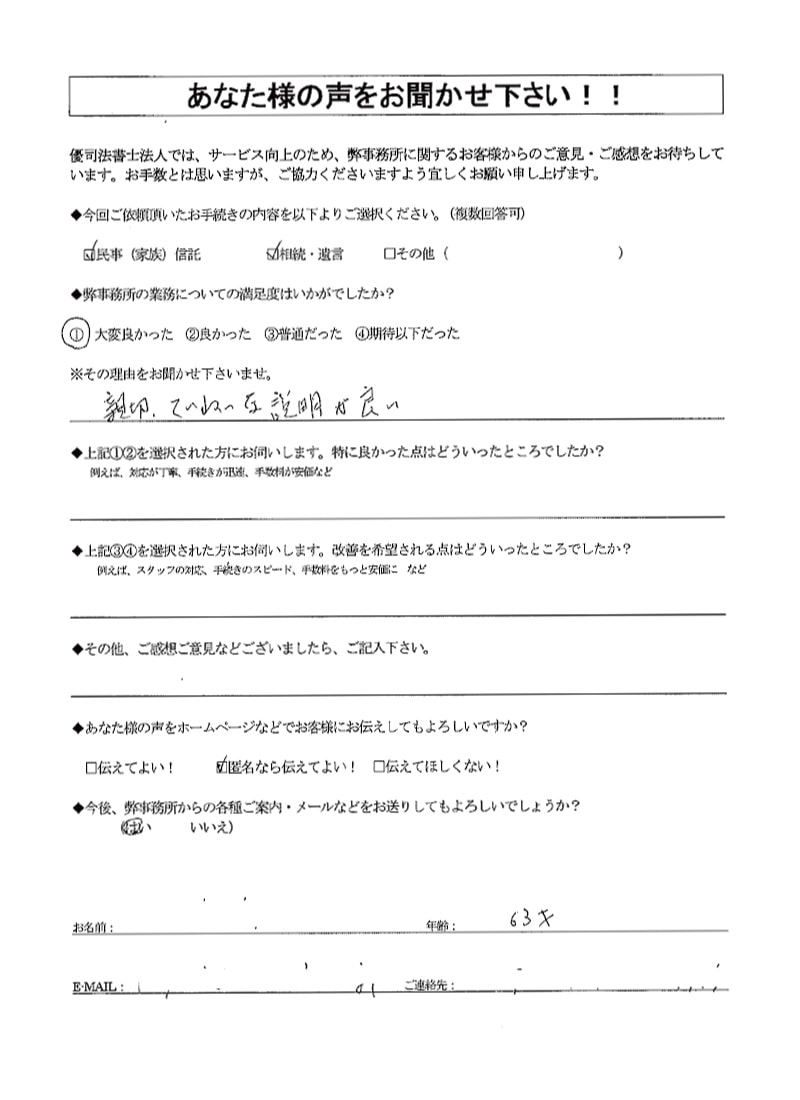 あなた様の声をお聞かせ下さい！！
優司法書士法人では、サービス向上のため、弊事務所に関するお客様からのご意見・ご感想をお待ちして
います。お手数とは思いますが、ご協力くださいますよう宜しくお願い申し上げます。
◆今回ご依頼頂いたお手続きの内容を以下よりご選択ください。（複数回答可）
☑民事（家族）信託 ☑相続・遺言 □その他（ ）
◆弊事務所の業務についての満足度はいかがでしたか？
① 大変良かった ②良かった ③普通だった ④期待以下だった
※その理由をお聞かせ下さいませ。
親切、ていねいな説明が良い
◆上記①②を選択された方にお伺いします。特に良かった点はどういったところでしたか？
例えば、対応が丁寧、手続きが迅速、手数料が安価など
◆上記③④を選択された方にお伺いします。改善を希望される点はどういったところでしたか？
例えば、スタッフの対応、手続きのスピード、手数料をもっと安価に など
◆その他、ご感想ご意見などございましたら、ご記入下さい。
◆あなた様の声をホームページなどでお客様にお伝えしてもよろしいですか？
□伝えてよい！ ☑匿名なら伝えてよい！ □伝えてほしくない！
◆今後、弊事務所からの各種ご案内・メールなどをお送りしてもよろしいでしょうか？
(はい いいえ)
お名前： 年齢： 63才
E-MAIL： ご連絡先：